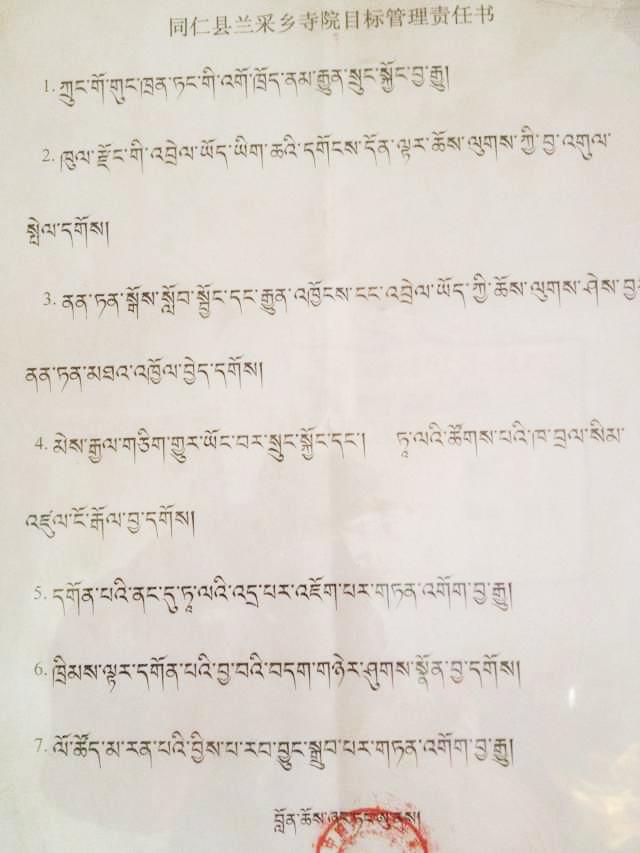 同仁县兰采乡寺院目标管理责任书
1. ཀྲུང་གོ་གུང་ཁྲན་ཏང་གི་འགོ་ཁྲིད་ནམ་རྒྱུན་སྲུང་སྐྱོང་བྱ་རྒྱུ།
2. ཁུལ་རྫོང་གི་འབྲེལ་ཡོད་ཡིག་ཆའི་དགོངས་དོན་ལྟར་ཆོས་ལུགས་ཀྱི་བྱ་འགུལ་
སྤེལ་དགོས།
3. ནན་ཏན་སྒོས་སློབ་སྦྱོང་དང་རྒྱུན་འཁྱོངས་ངང་འབྲེལ་ཡོད་ཀྱི་ཆོས་ལུགས་ཤེས་བྱ
ནན་ཏན་མཐའ་འཁྱོལ་བྱེད་དགོས།
4. མེས་རྒྱལ་གཅིག་གྱུར་ཡོང་བར་སྲུང་སྐྱོང་དང་། ཏཱ་ལའི་ཚོགས་པའི་ཁ་བྲལ་སིམ་
འཛུལ་ངོ་རྒོལ་བྱ་དགོས།
5. དགོན་པའི་ནང་དུ་ཏཱ་ལའི་འདྲ་པར་འཇོག་པར་གཏན་འགོག་བྱ་རྒྱུ།
6. ཁྲིམས་ལྟར་དགོན་པའི་བྱ་བའི་བདག་གཉེར་ཤུགས་སྣོན་བྱ་དགོས།
7. ལོ་ཚོད་མ་རན་པའི་བྱིས་པ་རབ་བྱུང་སྒྲུབ་པར་གཏན་འགོག་བྱ་རྒྱུ།
བློན་ཆོས་ཞང་ཏང་ཨུ་ནས།